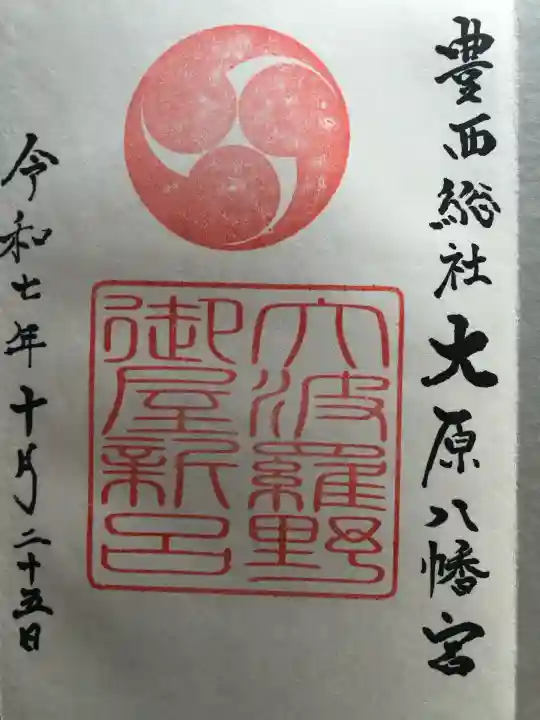 豊西総社大原八幡宮
大波羅野
御屋新印
令和七年十月二十五日